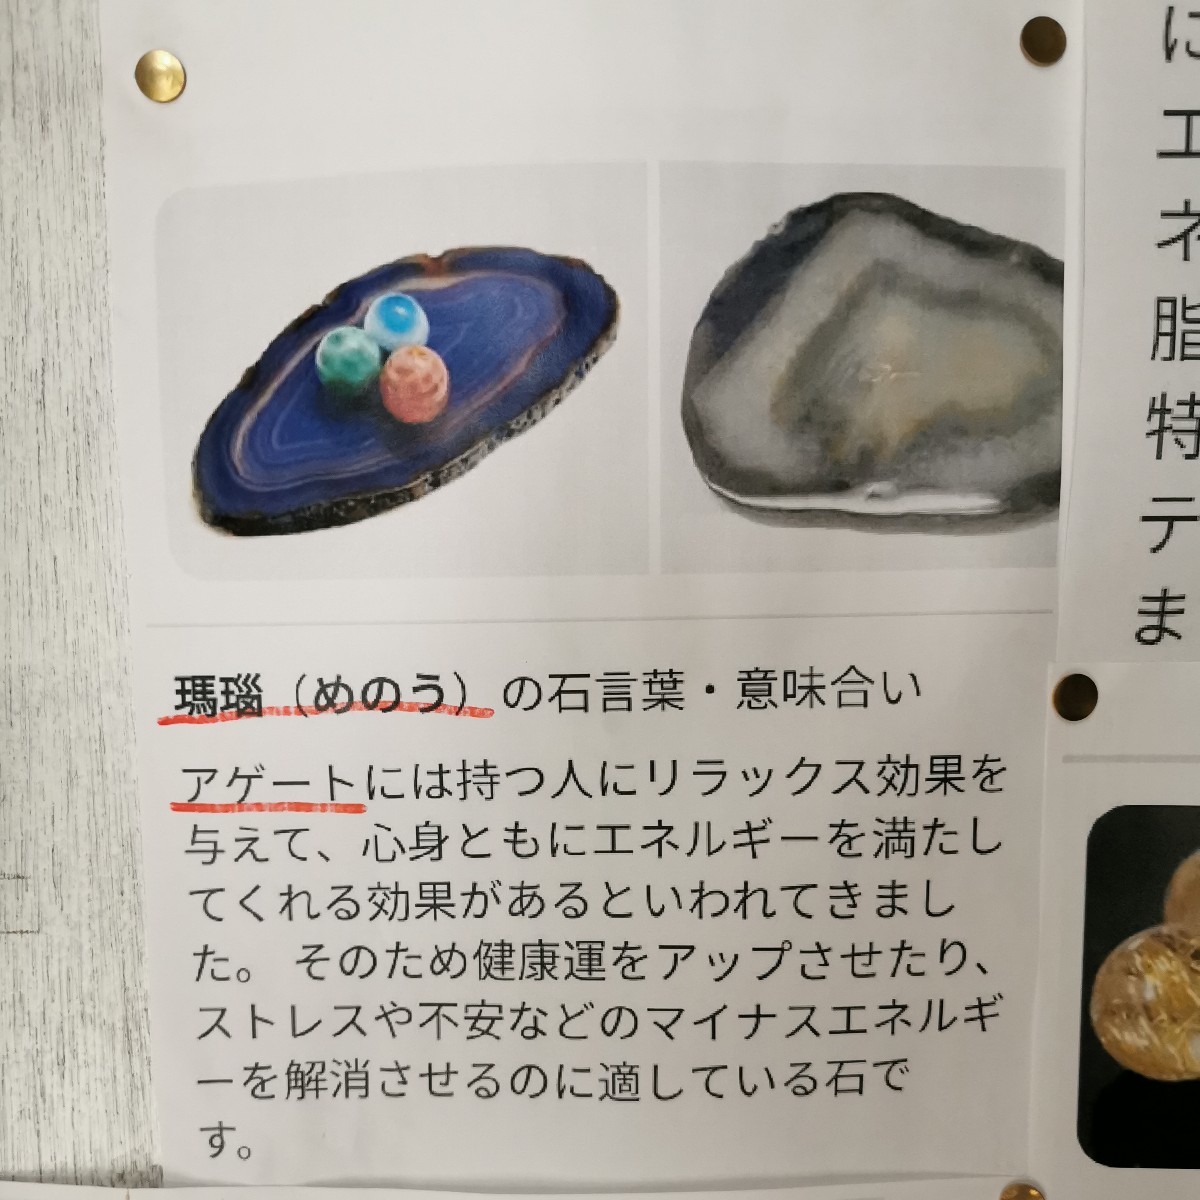 瑪瑙（めのう）の石言葉・意味合い
アゲートには持つ人にリラックス効果を
与えて、心身ともにエネルギーを満たし
てくれる効果があるといわれてきまし
た。 そのため健康運をアップさせたり、
ストレスや不安などのマイナスエネルギ
ーを解消させるのに適している石で
す。
に
エ
ネ
脂
特
テ
ま